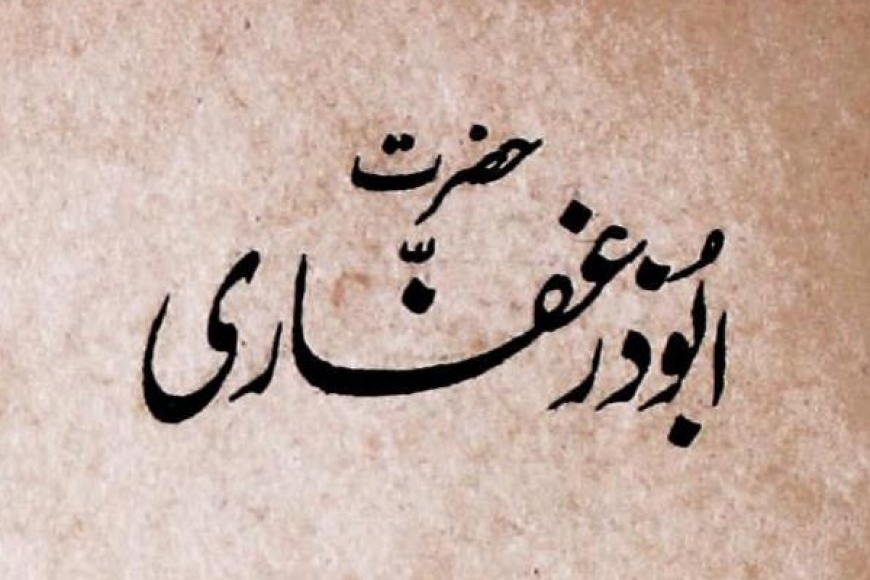 حضرت
ابُوذر غفّاری